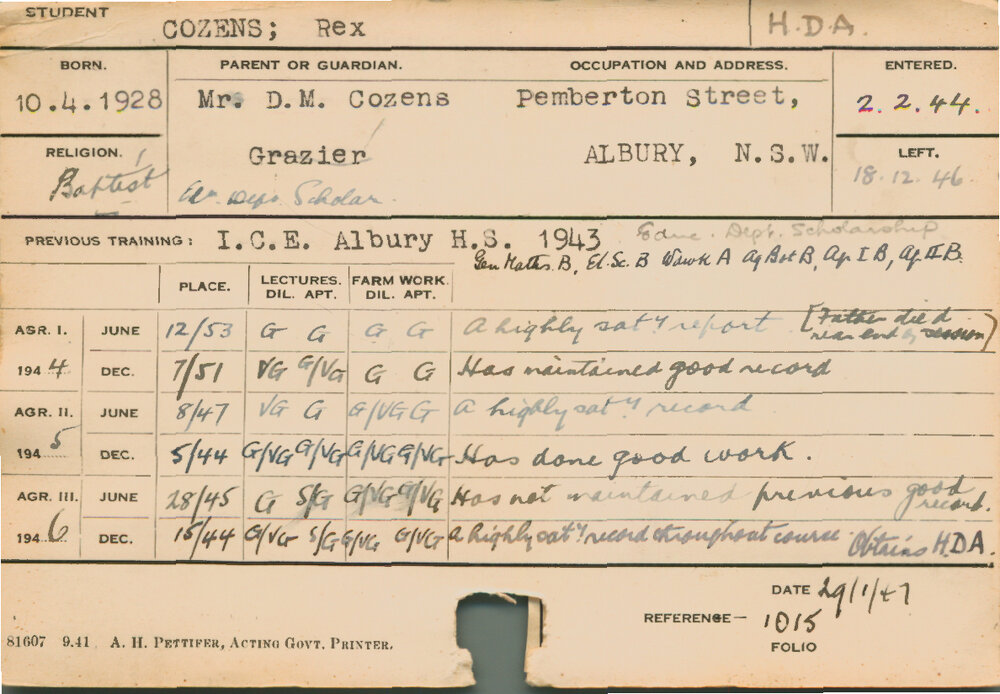 STUDENT
COZENS; Rex
H.D.A.
BORN.
PARENT OR GUARDIAN.
OCCUPATION AND ADDRESS.
ENTERED.
10.4.1928
Mr. D.M. Cozens
Pemberton Street,
2.2.44.
RELIGION.
Grazier
ALBURY, N.S.W.
LEFT.
Baptist
Dept. Scholar.
18.12.46.
PREVIOUS TRAINING: I.C.E. Albury H.S. 1943 Educ. Dept. Scholarship
Gen Maths B, El. Sc. B Wdwk A Ag Bot B, Ag. I B, Ag. II B.
PLACE.
LECTURES. DIL. APT.
FARM WORK. DIL. APT.
AGR. I. JUNE 12/53 G G G G A highly sat'y report [Father died near end of session]
1944 DEC. 7/51 VG G/VG G G Has maintained good record
AGR. II. JUNE 8/47 VG G G/VG G A highly sat'y record
1945 DEC. 5/44 G/VG G/VG G/VG G/VG Has done good work.
AGR. III. JUNE 28/45 G S/G G/VG G/VG Has not maintained previous good record.
1946 DEC. 15/44 G/VG S/G G/VG G/VG A highly sat'y record throughout course. Obtains H.D.A.
DATE 29/1/47
REFERENCE— 1015
FOLIO
81607 9.41 A. H. PETTIFER, ACTING GOVT. PRINTER.